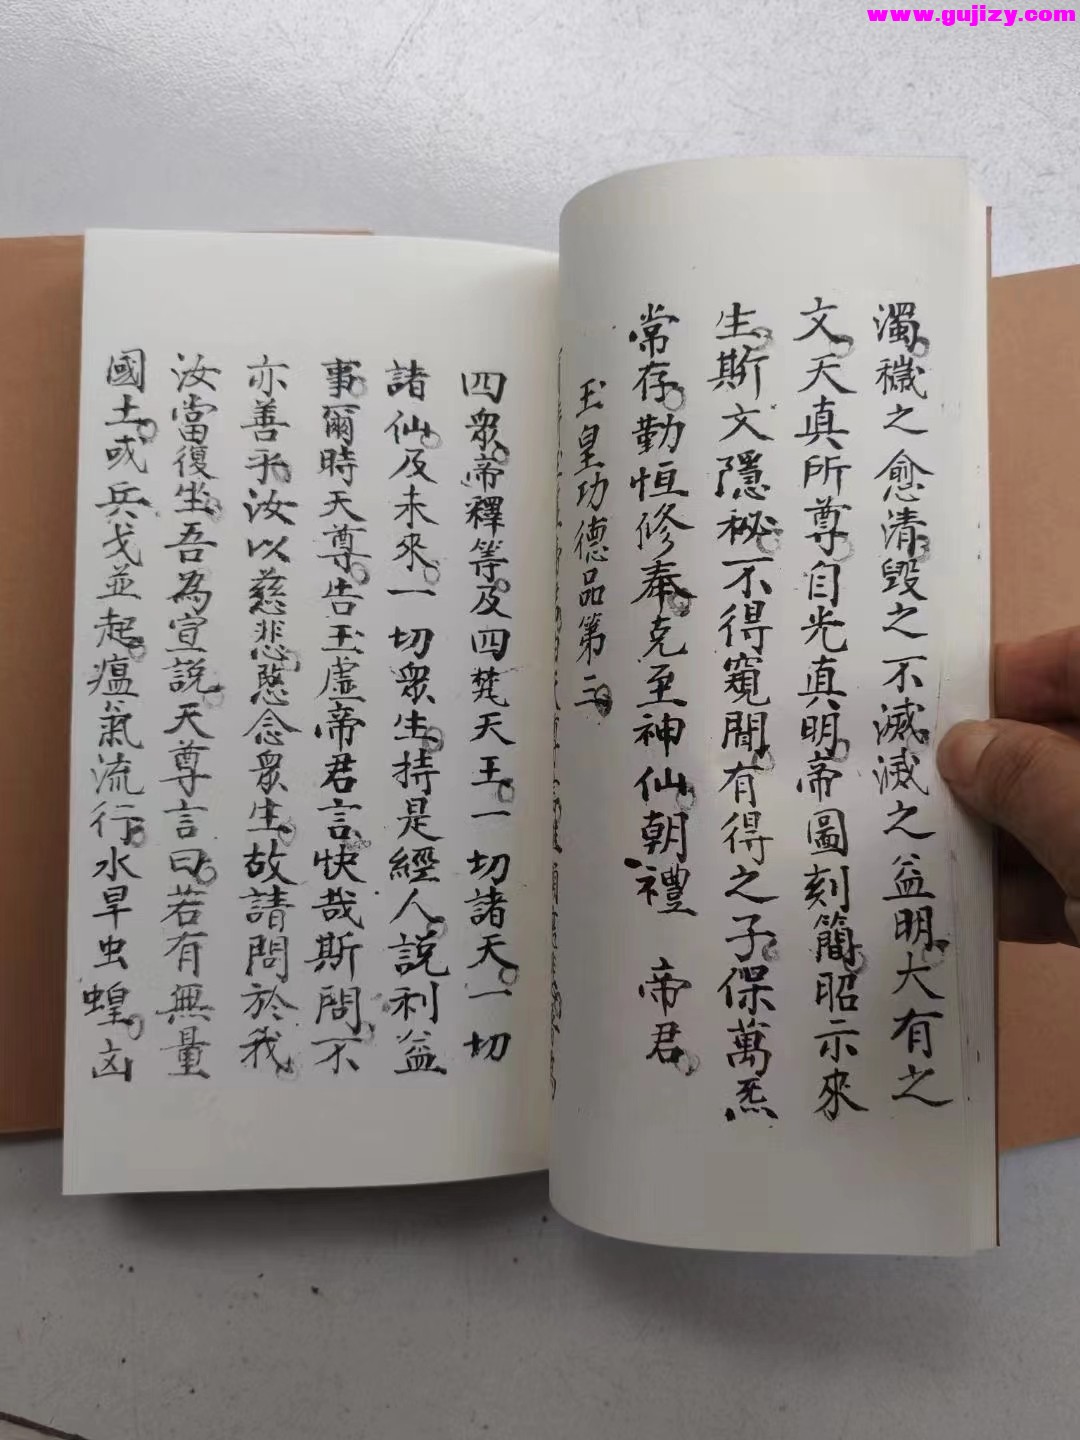 www.gujizy.com
濁穢之愈清毀之不滅滅之益明大有之
文天真所尊自光真明帝圖刻簡昭示來
生斯文隱秘不得窺聞有得之子保萬炁
常存勤恒修奉克至神仙朝禮　帝君
玉皇功德品第二
四眾帝釋等及四梵天王一切諸天一切
諸仙及未來一切眾生持是經人說利益
事爾時天尊告玉虛帝君言快哉斯問不
亦善乎汝以慈悲愍念眾生故請問於我
汝當復坐吾為宣說天尊言曰若有無量
國土或兵戈並起瘟氣流行水旱虫蝗凶